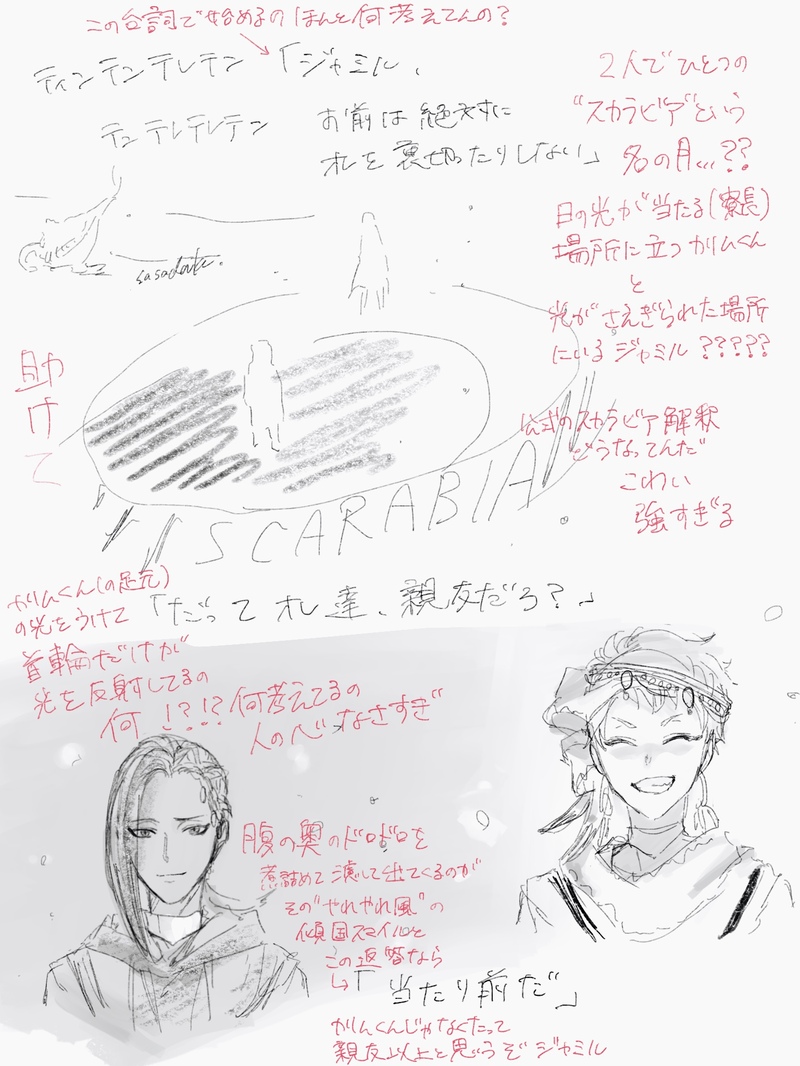 この台詞で始めるのほんと何考えてんの？
ティンテンテレテン 「ジャミル、
テンテレテレテン お前は絶対に
オレを裏切ったりしない」
2人でひとつの
“スカラビア”という
名の月...??
日の光が当たる(寮長)
場所に立つカリムくん
と
光がさえぎられた場所
にいるジャミル?????
sasadake.
助けて
公式のスカラビア解釈
どうなってんだ
こわい
強すぎる
SCARABIA
カリムくん(の足元)
の光をうけて
首輪だけが
光を反射してるの
何!?!?何考えてるの
人の心なさすぎ
「だってオレ達、親友だろ？」
腹の奥のドロドロを
煮詰めて濾して出てくるのが
その“やれやれ風”の
傾国スマイルと
この返答なら
「当たり前だ」
カリムくんじゃなくたって
親友以上と思うぞジャミル